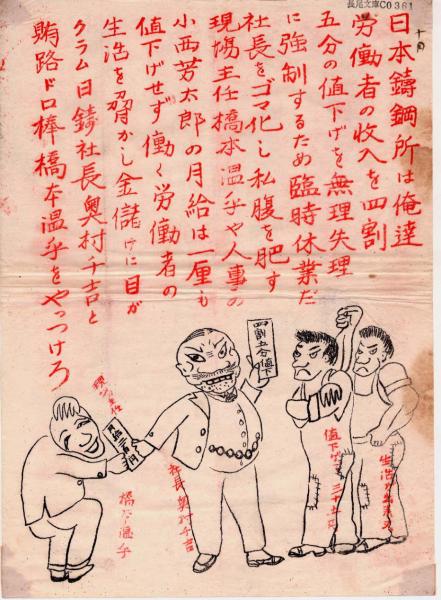 長尾文庫C0361
日本鋳鋼所は俺達
労働者の收入を四割
五分の値下げを無理失理
に強制するため臨時休業だ
社長をゴマ化し私腹を肥す
現場主任橋本温乎や人事の
小西芳太郎の月給は一厘も
値下げせず働く労働者の
生活を脅かし金儲けに目が
クラム日鋳社長奥村千吉と
賄路ドロ棒橋本温乎をやっつけろ
四割五分値下
社長奥村千吉
現場主任
橋本温乎